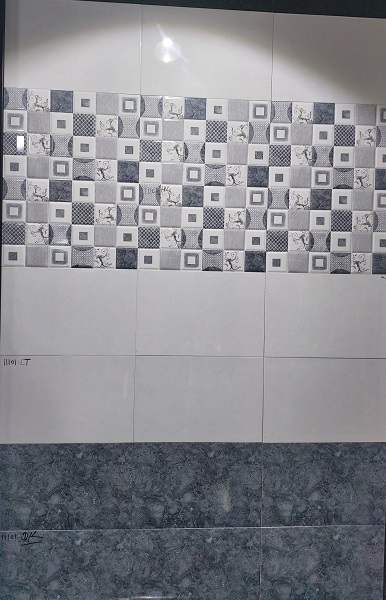 11101-LT
11101 DK